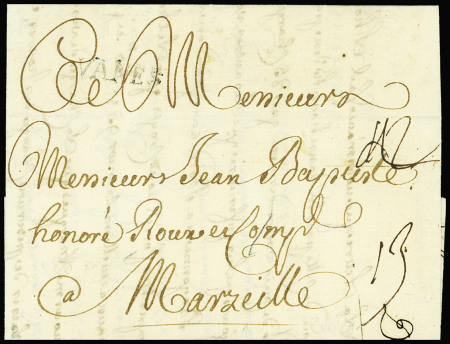 VANES
A Messieurs
Messieurs Jean Baptiste
honoré Roux et Comp
a Marzeille